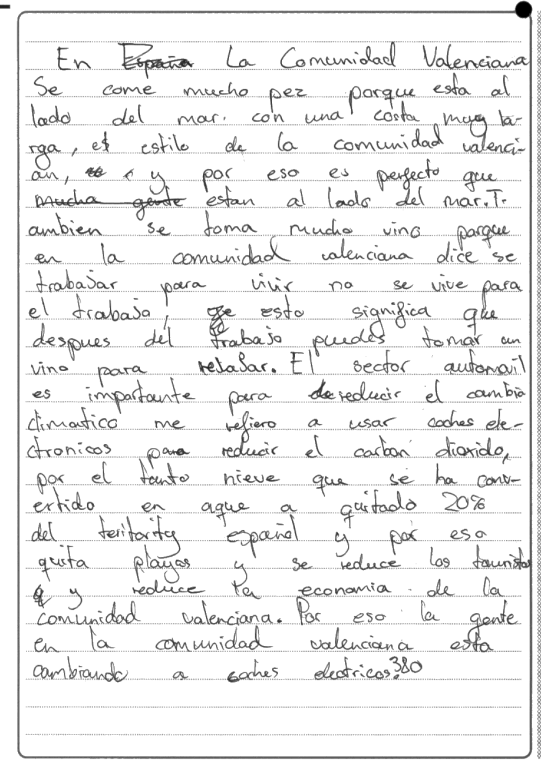 En España La Comunidad Valenciana
Se come mucho pez porque esta al
lado del mar. con una costa muy la-
rga, es estilo de la comunidad valenci-
an, y por eso es perfecto que
mucha gente estan al lado del mar. T-
ambien se toma mucho vino porque
en la comunidad valenciana dice se
trabasar para vivir no se vive para
el trabaso, esto significa que
despues del trabaso puedes tomar un
vino para relasar. El sector automail
es importante para reducir el cambio
climatico me refiero a usar coches ele-
ctronicos para reducir el carbon dioxido,
por el tanto nieve que se ha conv-
ertido en aque a quitado 20%
del teritority español y por eso
quita playas y se reduce los tourists
y reduce la economia de la
comunidad valenciana. Por eso la gente
en la comunidad valenciana esta
cambiando a coches electricos. 380